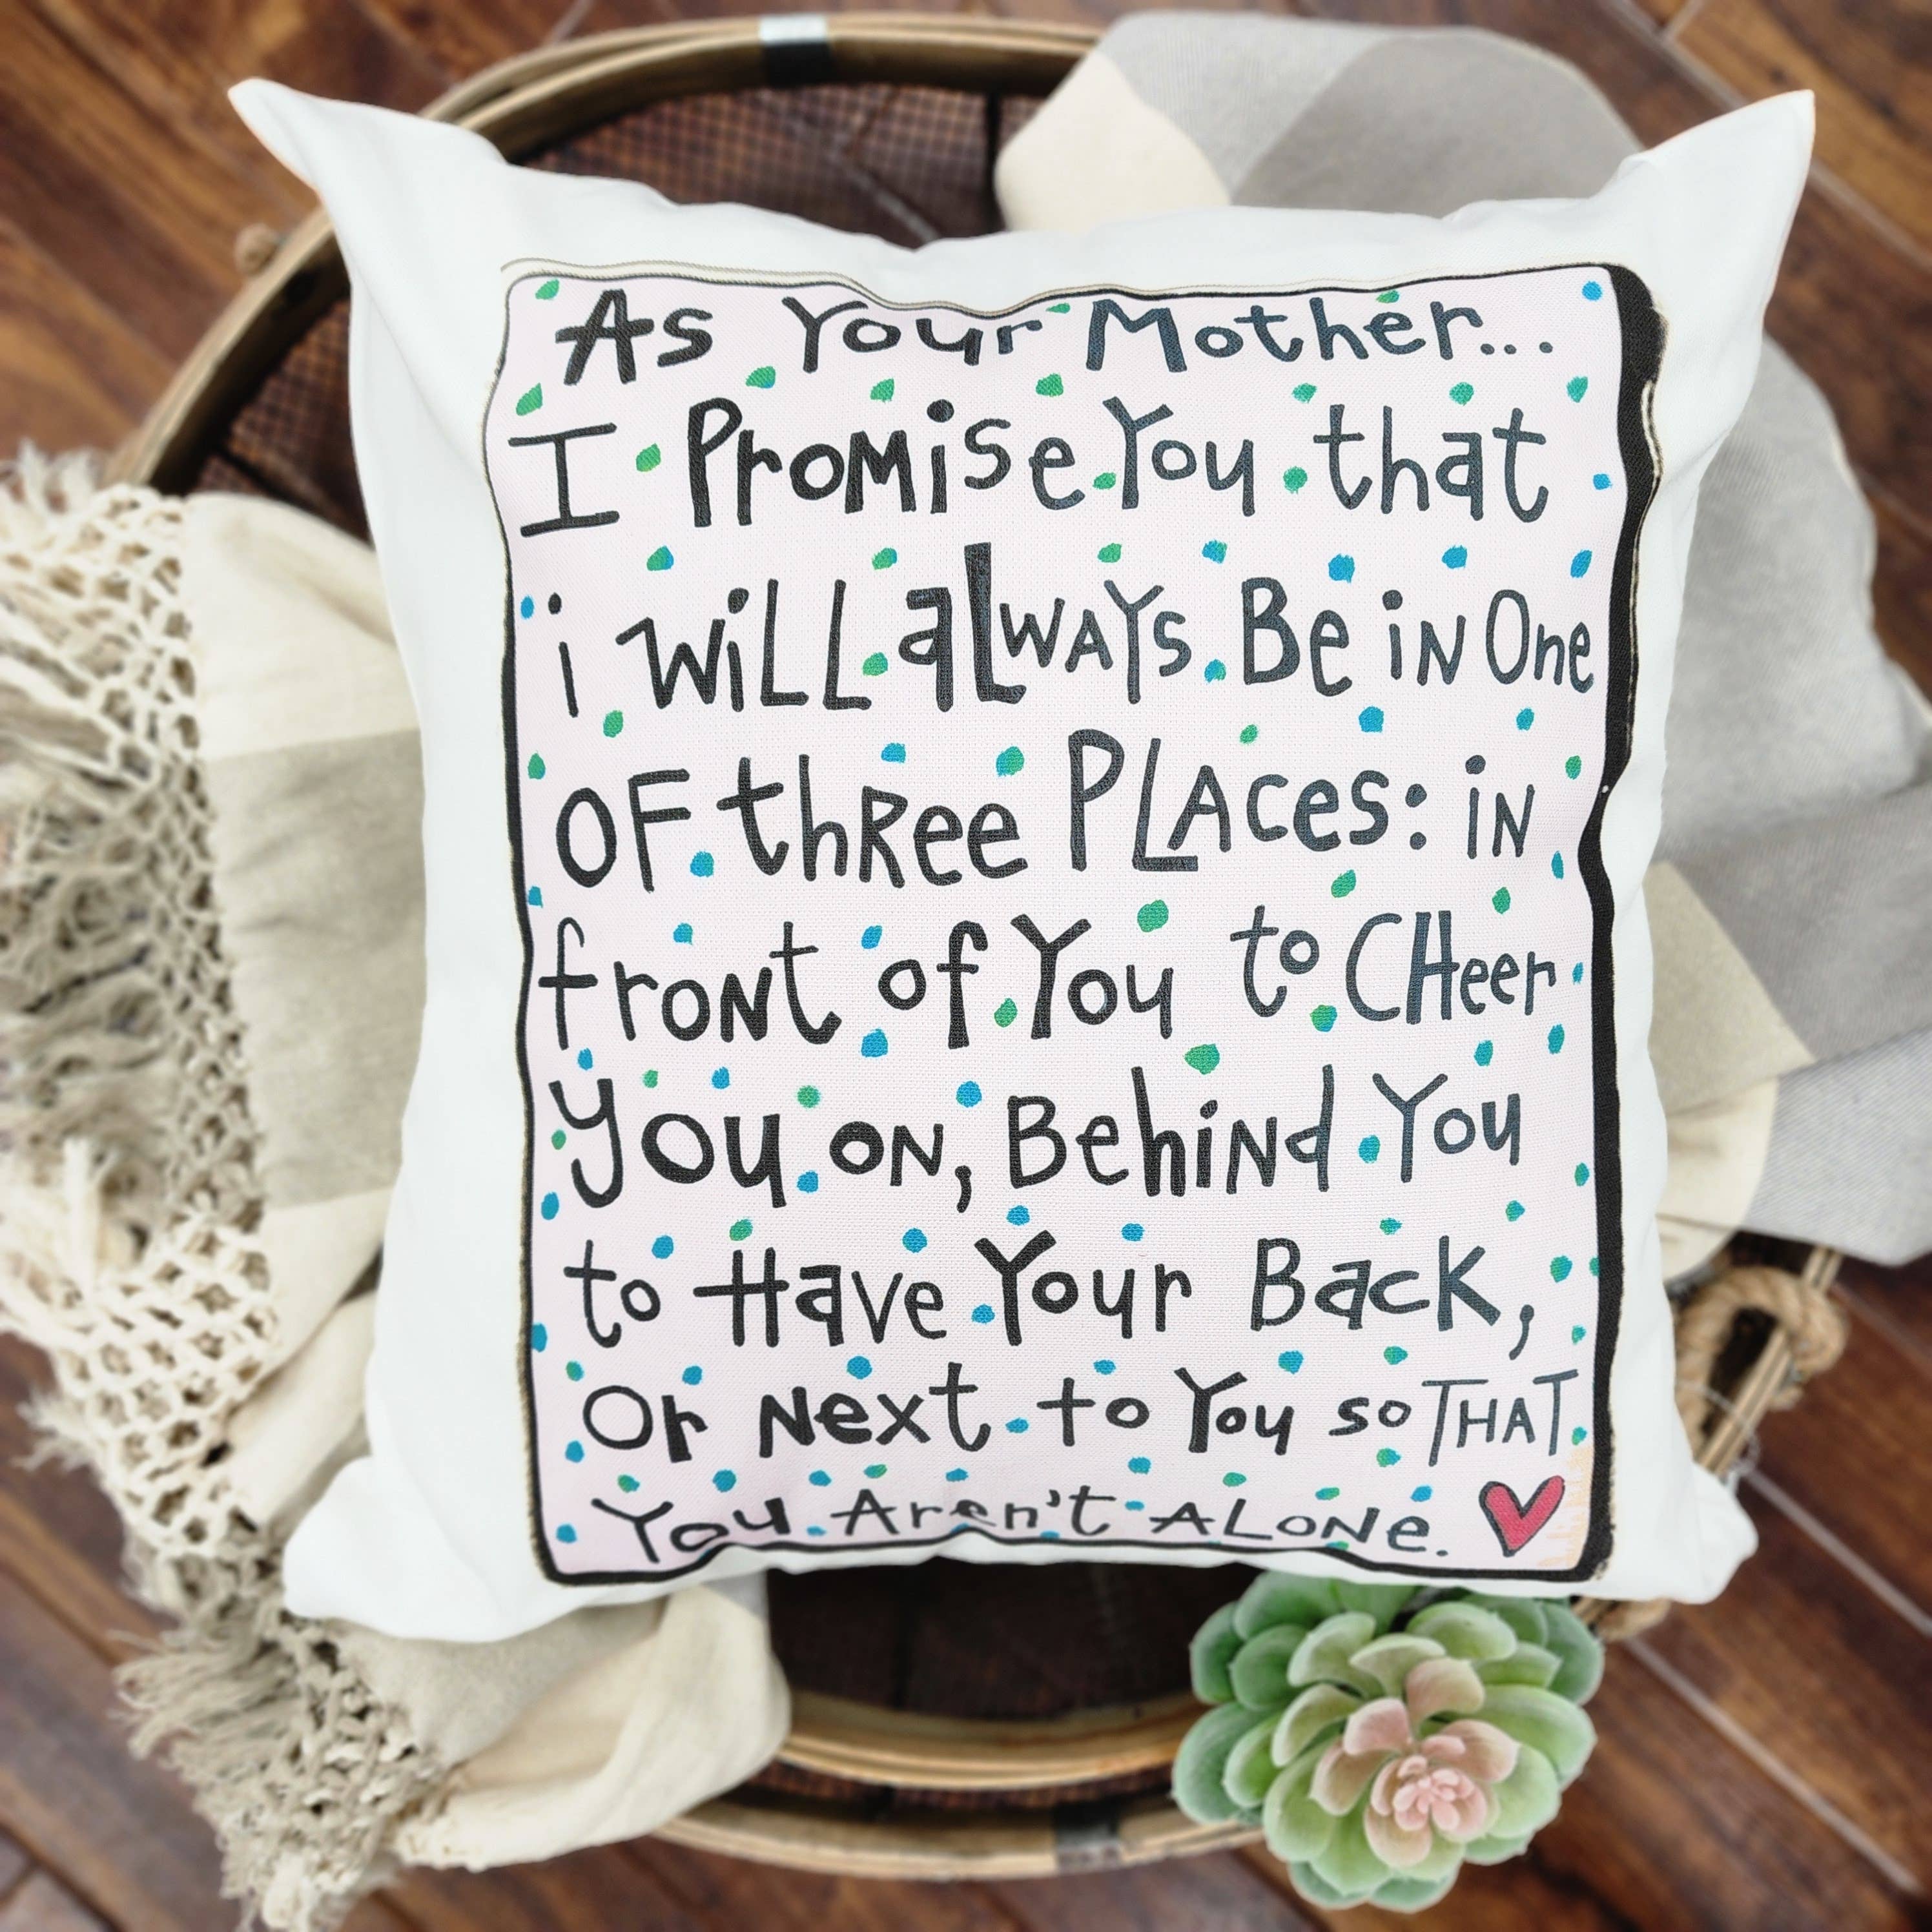 As Your Mother...
I PROMiSe You that
i WiLL aLWAYs Be iN One
OF thRee PLACes: iN
froNt of You to CHeer
you oN, BehiNd You
to Have Your Back,
Or Next to You so THAT
You Aren't ALONe.